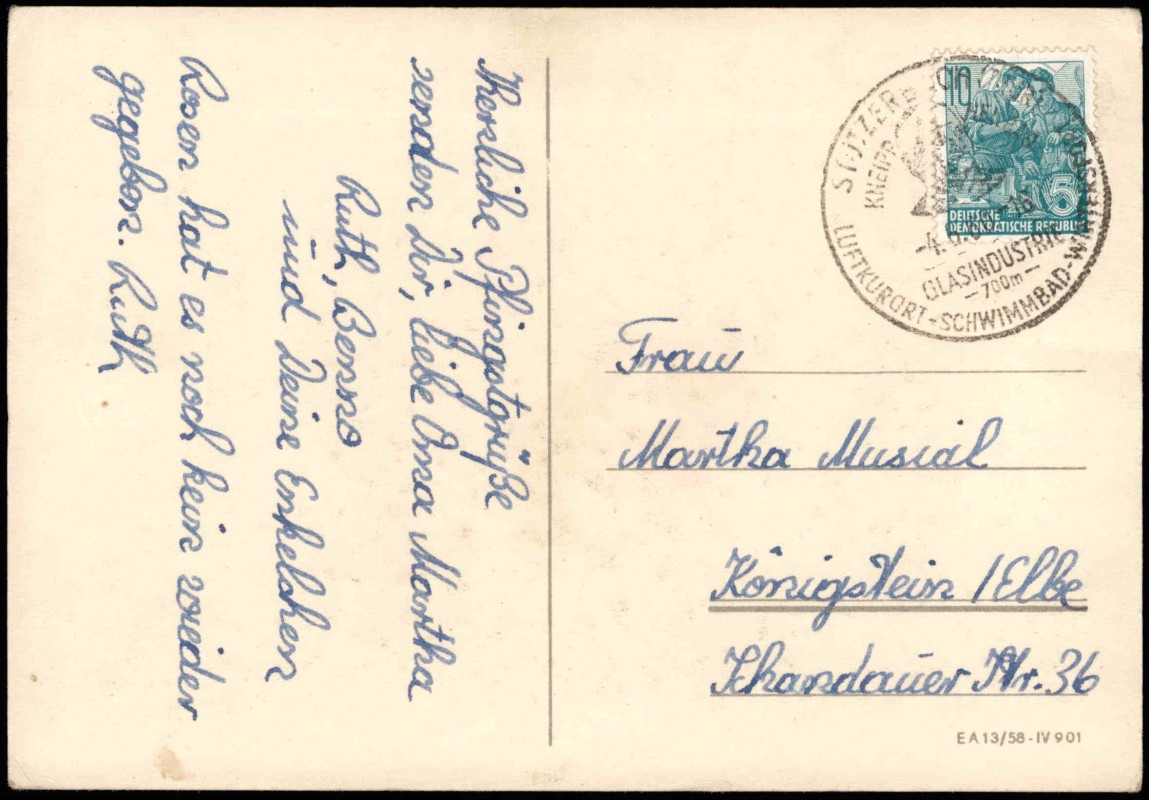 Herzliche Pfingstgrüße
senden Dir, liebe Oma Martha
Ruth, Benno
und Deine Enkelchen
Rosen hat es noch keine wieder
gegeben. Ruth
10
5
DEUTSCHE
DEMOKRATISCHE REPUBLIK
KNEIPP
GLASINDUSTRIE
-700m-
LUFTKURORT-SCHWIMMBAD-WINTERSPORT
Frau
Martha Musial
Königstein /Elbe
Schandauer Str. 36
EA13/58-IV901